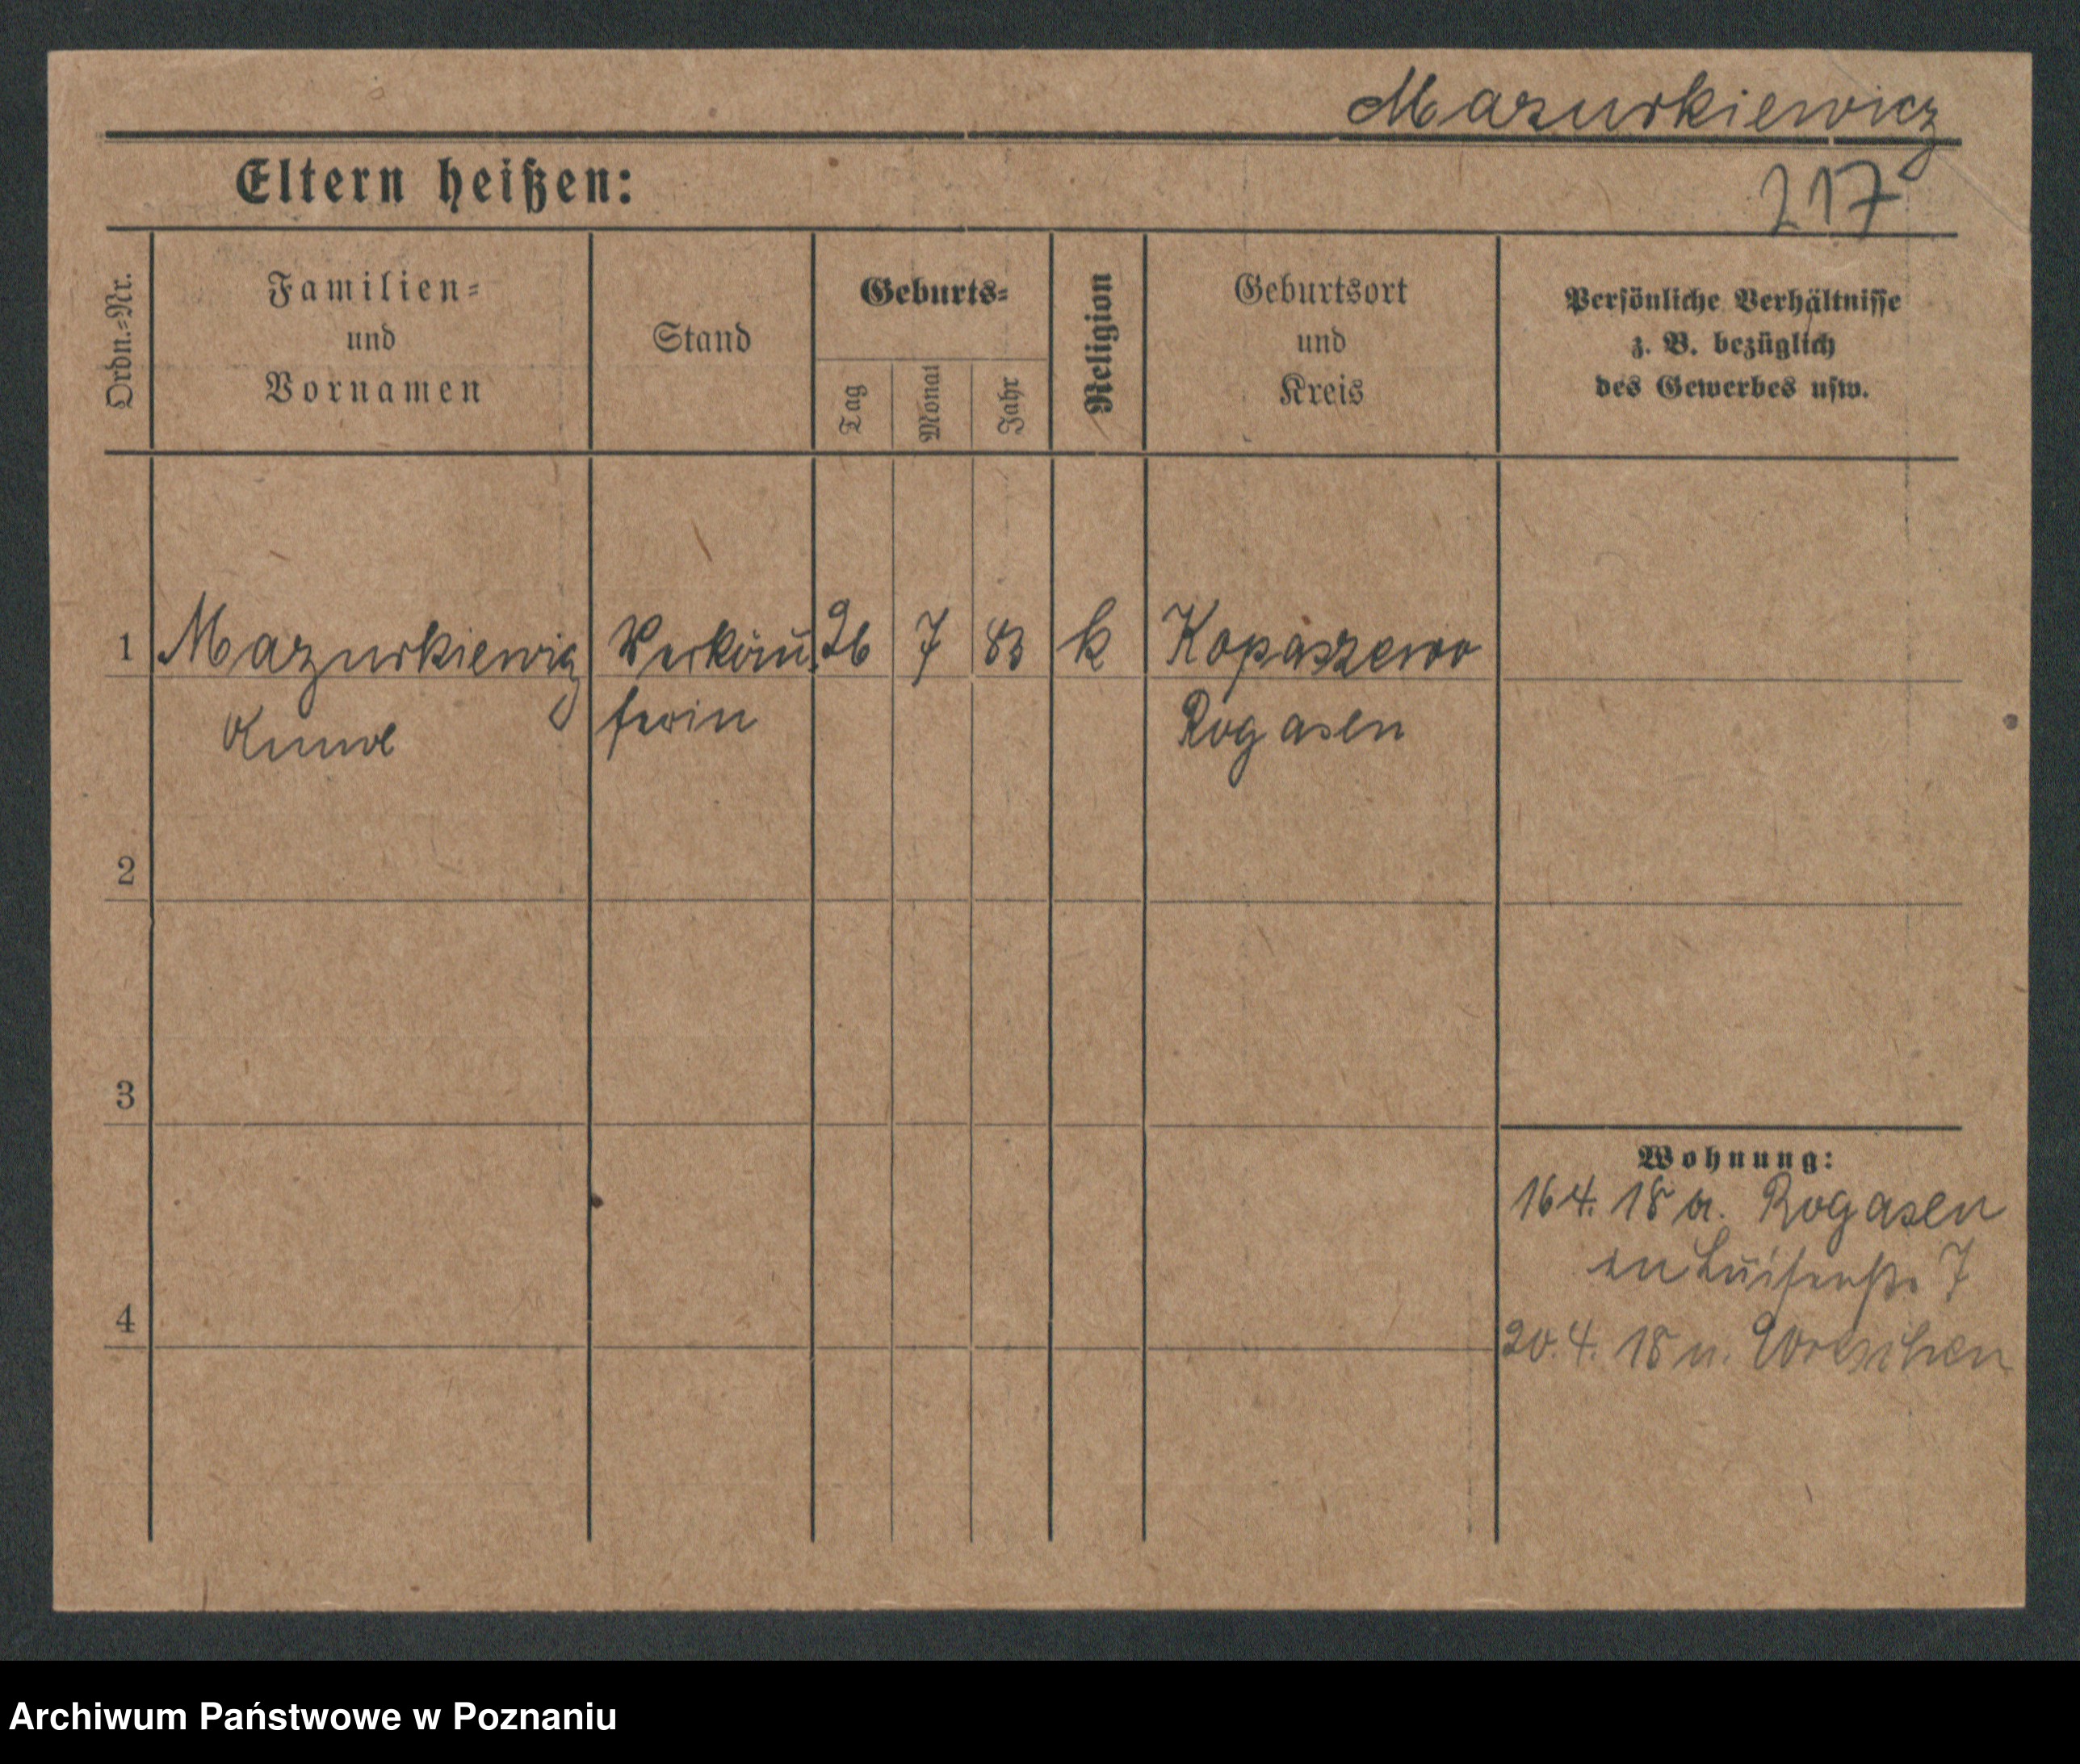 Mazurkiewicz
Eltern heißen:
217
Ordn.-Nr.
Familien-
und
Vornamen
Stand
Geburts-
Tag
Monat
Jahr
Religion
Geburtsort
und
Kreis
Persönliche Verhältnisse
z. B. bezüglich
des Gewerbes usw.
1 Mazurkiewicz Verkäu 26 7 83 k Kopaszewo
ferin Rogasen
2
3
Wohnung:
16 4. 18 a. Rogasen
Luisenstr 7
4
20. 4. 18 n. Wreschen
Archiwum Państwowe w Poznaniu